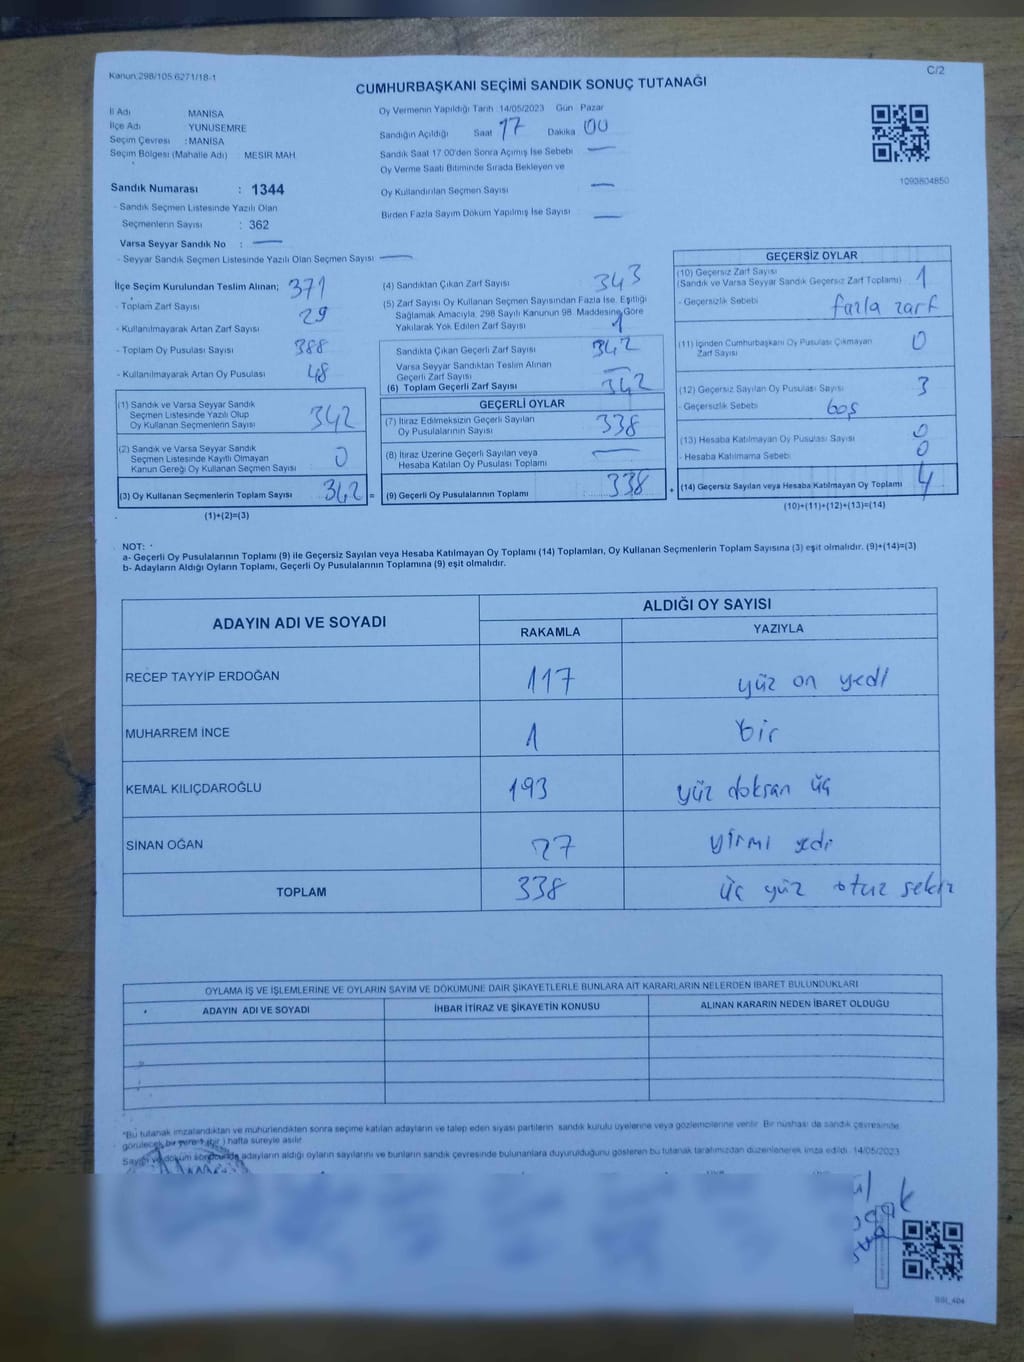 Kanun.298/105.6271/18-1
C/2
CUMHURBAŞKANI SEÇİMİ SANDIK SONUÇ TUTANAĞI
İl Adı MANİSA
İlçe Adı YUNUSEMRE
Seçim Çevresi : MANİSA
Seçim Bölgesi (Mahalle Adı) MESİR MAH.
Sandık Numarası : 1344
- Sandık Seçmen Listesinde Yazılı Olan
Seçmenlerin Sayısı : 362
Varsa Seyyar Sandık No : —
- Seyyar Sandık Seçmen Listesinde Yazılı Olan Seçmen Sayısı —
Oy Vermenin Yapıldığı Tarih 14/05/2023 Gün Pazar
Sandığın Açıldığı Saat 17 Dakika 00
Sandık Saat 17.00'den Sonra Açımış İse Sebebi —
Oy Verme Saati Bitiminde Sırada Bekleyen ve
Oy Kullandırılan Seçmen Sayısı —
Birden Fazla Sayım Döküm Yapılmış İse Sayısı —
1093804850
İlçe Seçim Kurulundan Teslim Alınan; 371
- Toplam Zarf Sayısı 29
- Kullanılmayarak Artan Zarf Sayısı
- Toplam Oy Pusulası Sayısı 388
- Kullanılmayarak Artan Oy Pusulası 48
(1) Sandık ve Varsa Seyyar Sandık
Seçmen Listesinde Yazılı Olup
Oy Kullanan Seçmenlerin Sayısı 342
(2) Sandık ve Varsa Seyyar Sandık
Seçmen Listesinde Kayıtlı Olmayan
Kanun Gereği Oy Kullanan Seçmen Sayısı 0
(3) Oy Kullanan Seçmenlerin Toplam Sayısı 342 =
(1)+(2)=(3)
(4) Sandıktan Çıkan Zarf Sayısı 343
(5) Zarf Sayısı Oy Kullanan Seçmen Sayısından Fazla İse, Eşitliği
Sağlamak Amacıyla, 298 Sayılı Kanunun 98. Maddesine Göre
Yakılarak Yok Edilen Zarf Sayısı 1
Sandıkta Çıkan Geçerli Zarf Sayısı 342
Varsa Seyyar Sandıktan Teslim Alınan
Geçerli Zarf Sayısı —
(6) Toplam Geçerli Zarf Sayısı 342
GEÇERLİ OYLAR
(7) İtiraz Edilmeksizin Geçerli Sayılan
Oy Pusulalarının Sayısı 338
(8) İtiraz Üzerine Geçerli Sayılan veya
Hesaba Katılan Oy Pusulası Toplamı —
(9) Geçerli Oy Pusulalarının Toplamı 338 +
GEÇERSİZ OYLAR
(10) Geçersiz Zarf Sayısı
(Sandık ve Varsa Seyyar Sandık Geçersiz Zarf Toplamı) 1
- Geçersizlik Sebebi fazla zarf
(11) İçinden Cumhurbaşkanı Oy Pusulası Çıkmayan
Zarf Sayısı 0
(12) Geçersiz Sayılan Oy Pusulası Sayısı 3
- Geçersizlik Sebebi boş
(13) Hesaba Katılmayan Oy Pusulası Sayısı 0
- Hesaba Katılmama Sebebi 0
(14) Geçersiz Sayılan veya Hesaba Katılmayan Oy Toplamı 4
(10)+(11)+(12)+(13)=(14)
NOT:
a- Geçerli Oy Pusulalarının Toplamı (9) ile Geçersiz Sayılan veya Hesaba Katılmayan Oy Toplamı (14) Toplamları, Oy Kullanan Seçmenlerin Toplam Sayısına (3) eşit olmalıdır. (9)+(14)=(3)
b- Adayların Aldığı Oyların Toplamı, Geçerli Oy Pusulalarının Toplamına (9) eşit olmalıdır.
ADAYIN ADI VE SOYADI
ALDIĞI OY SAYISI
RAKAMLA YAZIYLA
RECEP TAYYİP ERDOĞAN 117 yüz on yedi
MUHARREM İNCE 1 bir
KEMAL KILIÇDAROĞLU 193 yüz doksan üç
SİNAN OĞAN 27 yirmi yedi
TOPLAM 338 üç yüz otuz sekiz
OYLAMA İŞ VE İŞLEMLERİNE VE OYLARIN SAYIM VE DÖKÜMÜNE DAİR ŞİKAYETLERLE BUNLARA AİT KARARLARIN NELERDEN İBARET BULUNDUKLARI
ADAYIN ADI VE SOYADI İHBAR İTİRAZ VE ŞİKAYETİN KONUSU ALINAN KARARIN NEDEN İBARET OLDUĞU
"Bu tutanak imzalandıktan ve mühürlendikten sonra seçime katılan adayların ve talep eden siyasi partilerin sandık kurulu üyelerine veya gözlemcilerine verilir. Bir nüshası da sandık çevresinde
görülecek bir yere hafta süreyle asılır
Sayım ve döküm sonucunda adayların aldığı oyların sayılarını ve bunların sandık çevresinde bulunanlara duyurulduğunu gösteren bu tutanak tarafımızdan düzenlenerek imza edildi. 14/05/2023